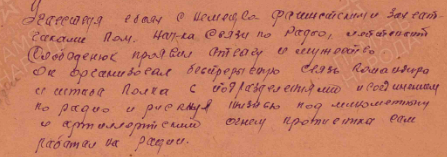 Участвуя в боях с немецко фашистскими захват
чиками Пом. Нач-ка связи по радио, лейтенант
Слободенюк проявил отвагу и мужество.
Он организовал бесперебойную связь командира
и штаба полка с подразделениями и соединением
по радио и рискуя жизнью под минометным
и артиллерийским огнем противника сам
работал на рации.